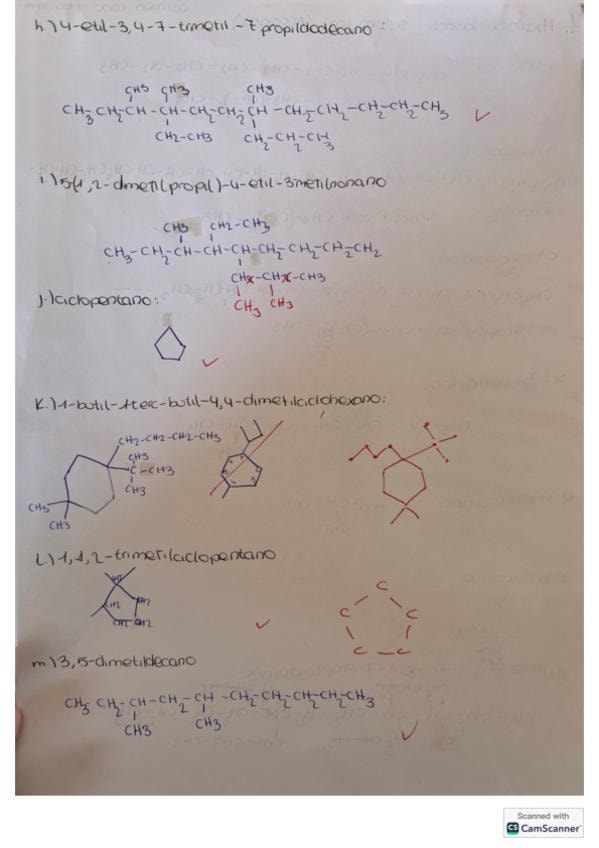 h.) 4-etil-3,4-7-trimetil-7propildodecano:
CH3 CH3 CH3
CH3-CH2CH-CH-CH2CH2CH -CH2CH2-CH2-CH2-CH3
CH2-CH3 CH2-CH2CH3
i.) 5(1,2-dimetil(propil)-4-etil-3metilnonano
CH3 CH2-CH3
CH3-CH2-CH-CH-CH-CH2-CH2-CH2-CH2
CHx-CHx-CH3
CH3 CH3
j.) ciclopentano:
k.) 1-butil-1terc-butil-4,4-dimetilciclohexano:
CH2-CH2-CH2-CH3
CH3
C-CH3
CH3
CH3
CH3
l.) 1,1,2-trimetilciclopentano
CH2
CH2 CH2
C
C C
C C
m.) 3,5-dimetildecano
CH3 CH2-CH-CH2-CH -CH2-CH2-CH2-CH2-CH3
CH3 CH3
Scanned with
CS CamScanner